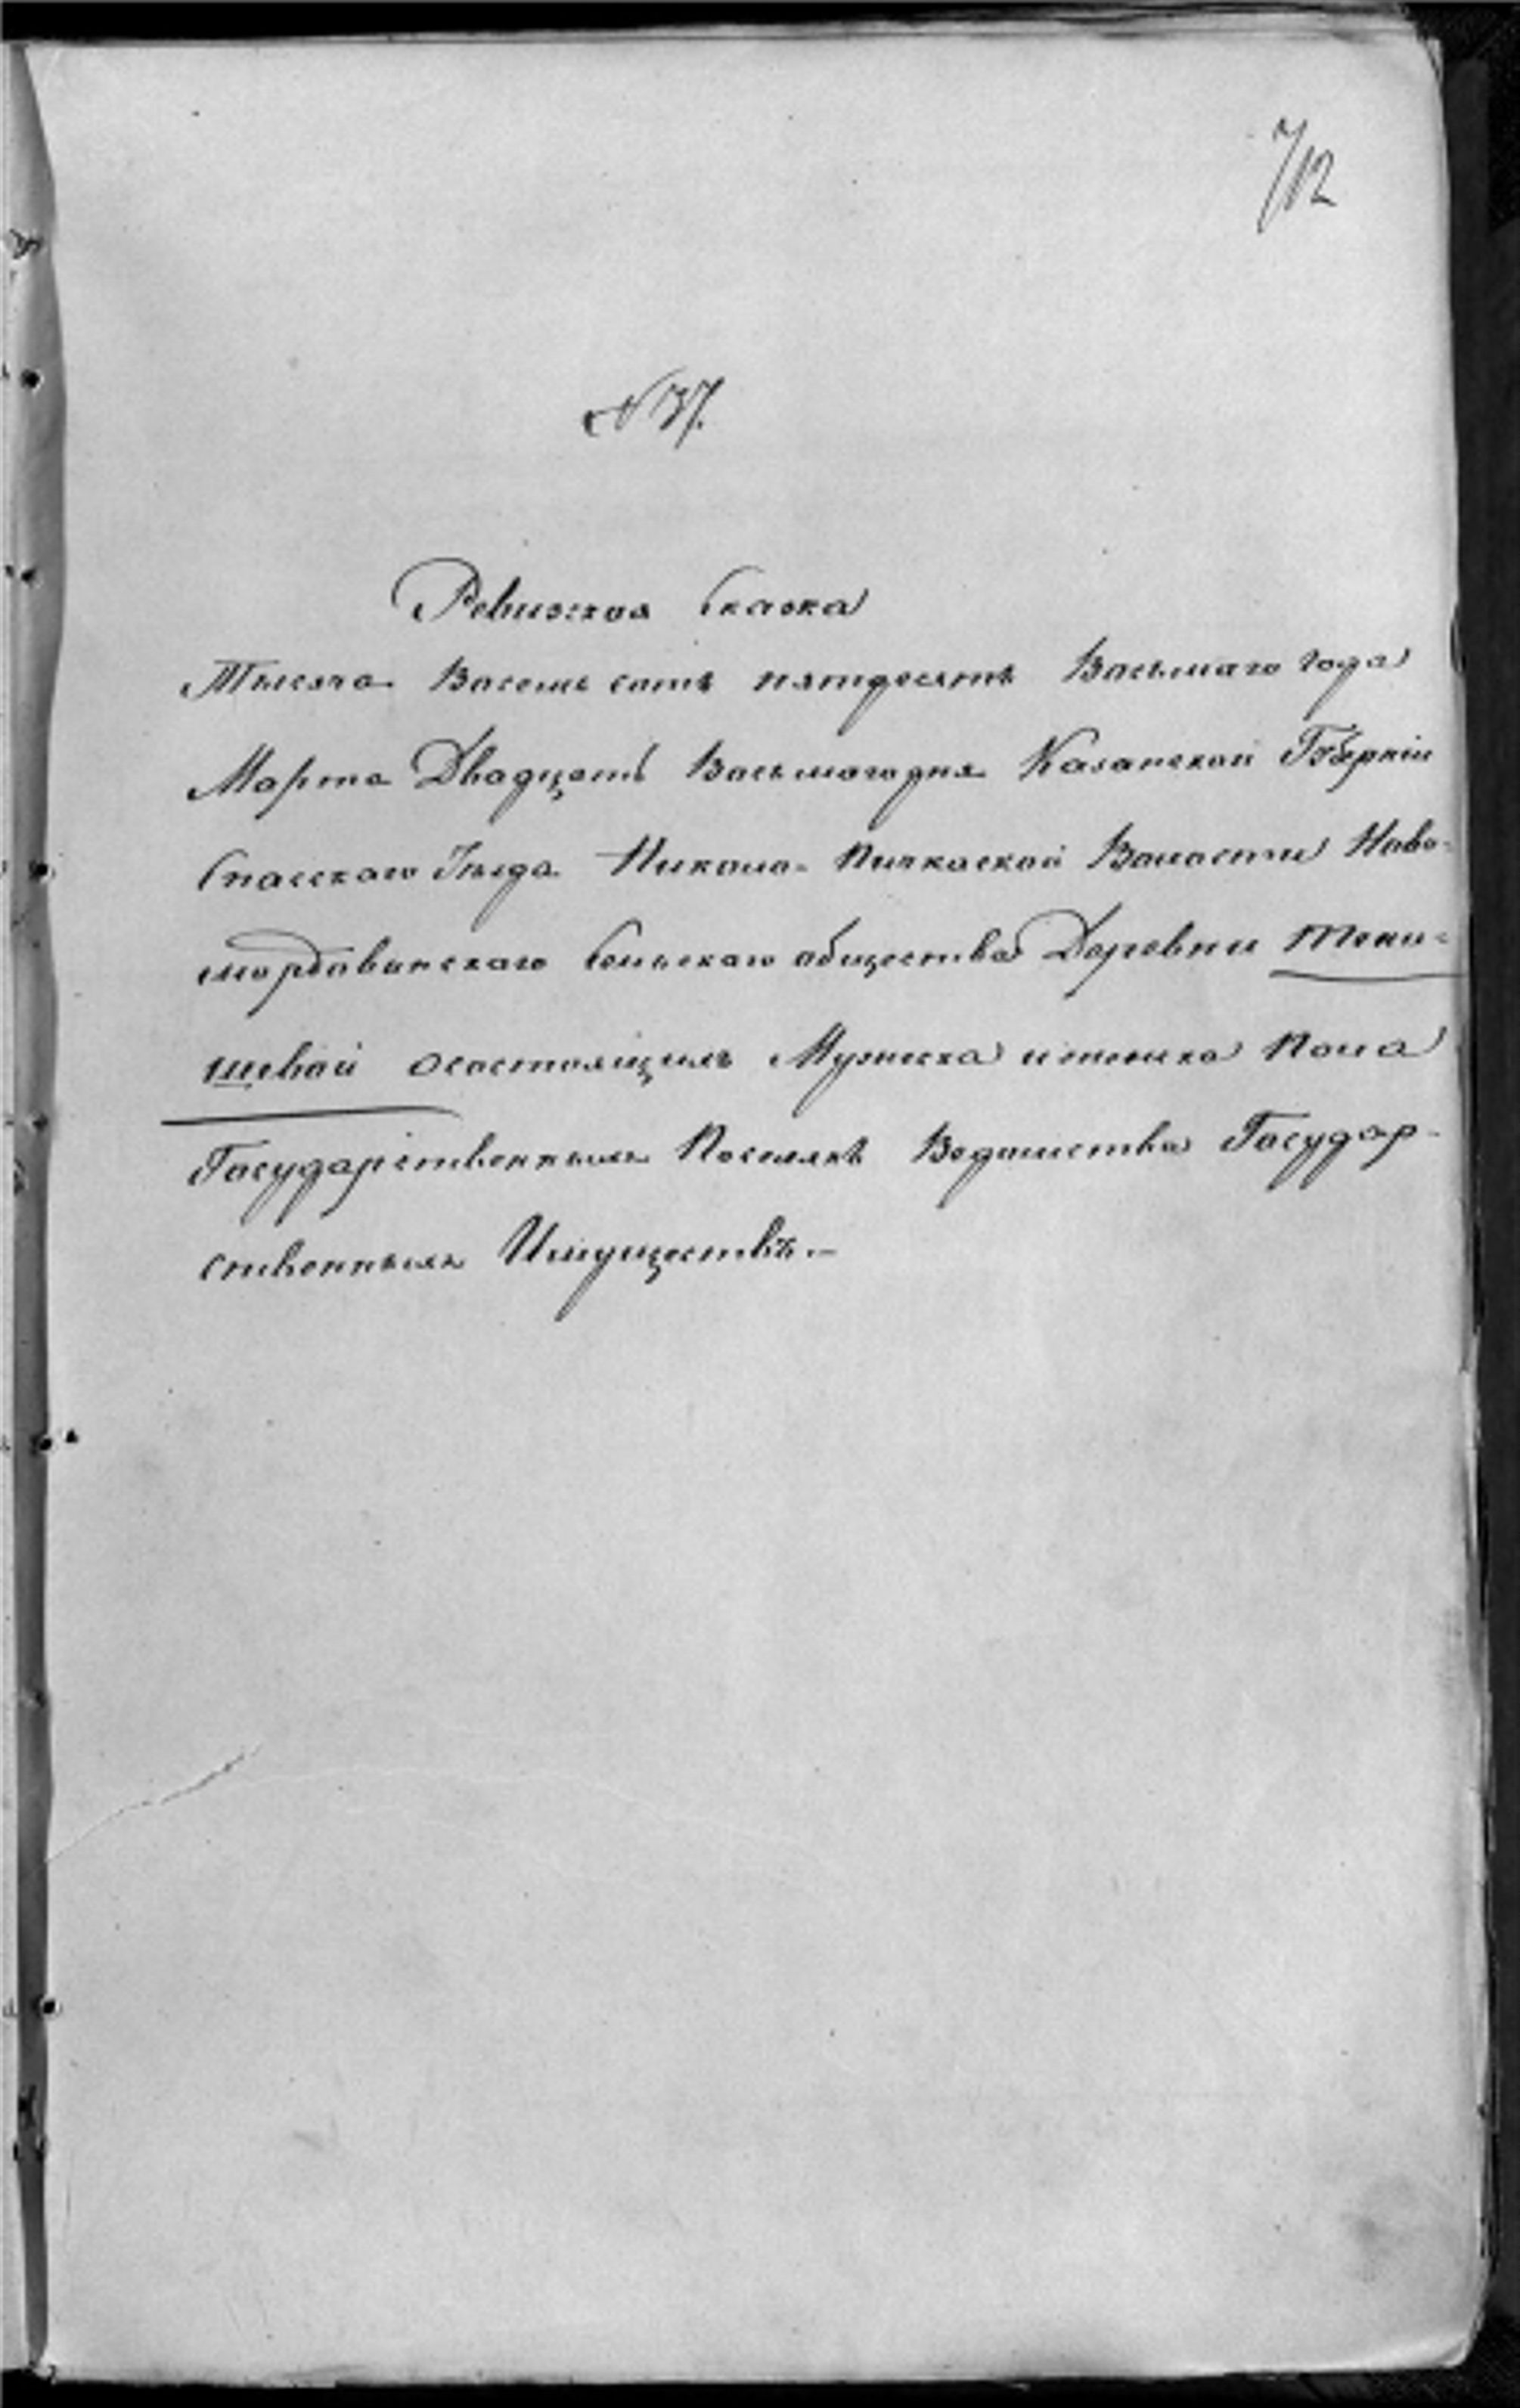 712
№ 37.
Ревизская Сказка
Тысяча Восемь сотъ пятдесятъ Восьмаго года
Марта Двадцать Восьмаго дня Казанской Губерніи
Спасскаго Уѣзда Никола-Пичкаской Волости Ново-
мордовинскаго Сельскаго общества Деревни Тени-
шевой осостоящихъ Мужеска иженска Пола
Государственныхъ Поселянъ Ведомства Государ-
ственныхъ Имуществъ.—